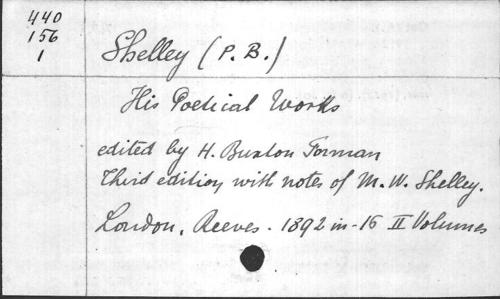 440
156
1
Shelley (P. B.)
His Poetical Works
edited by H. Buxton Forman
Third edition with notes of M. W. Shelley.
London, Reeves. 1892 in-16 II Volumes